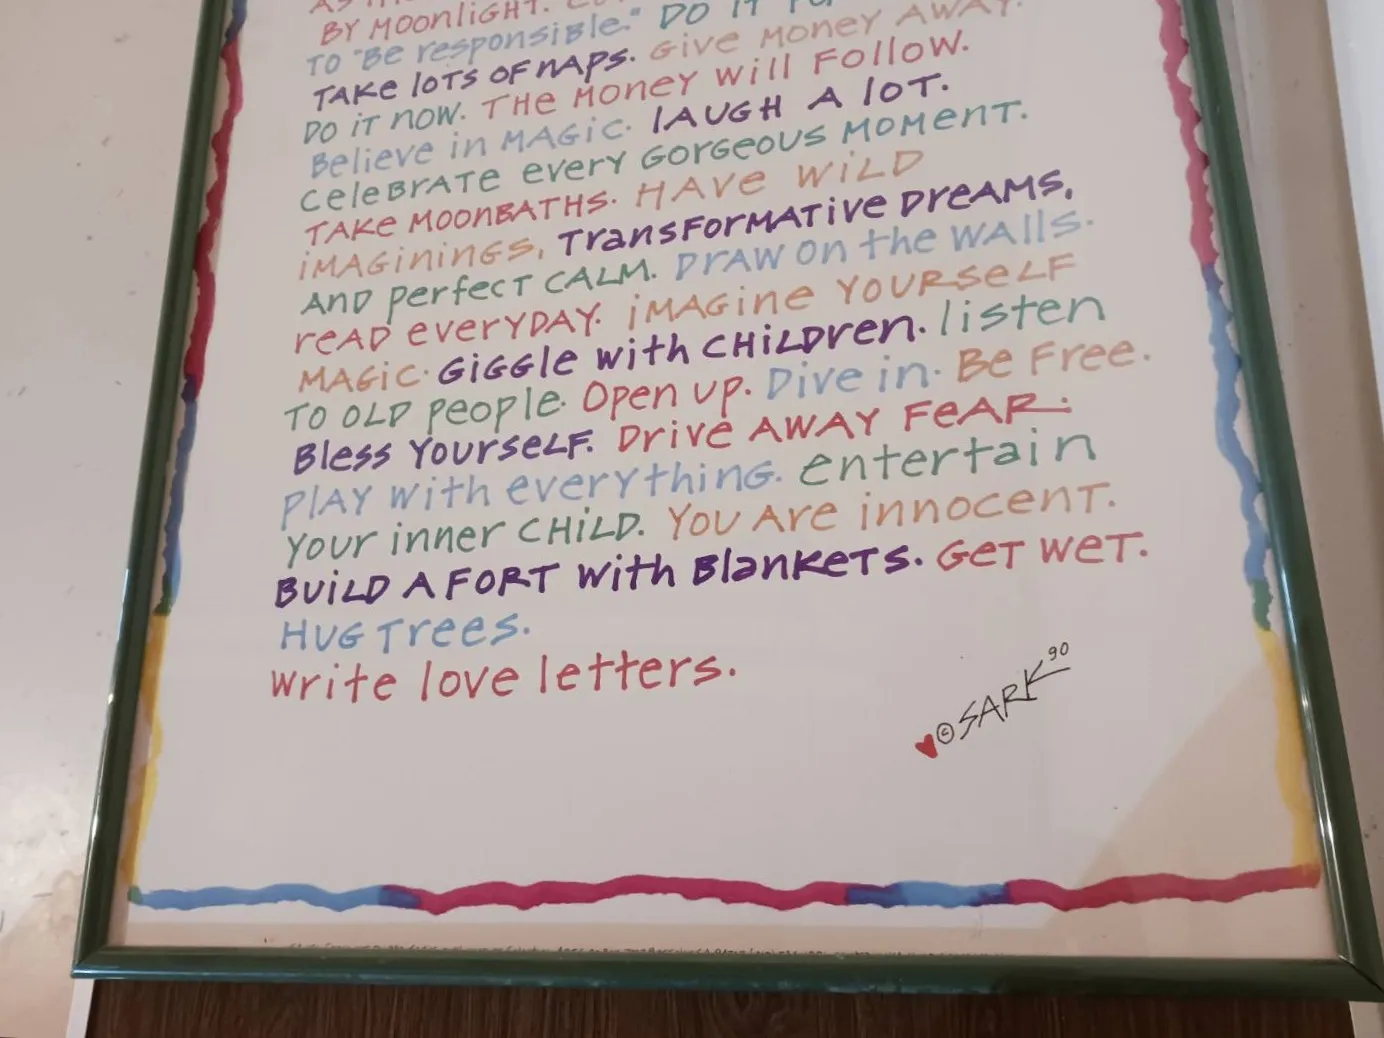 BY MOONliGHT.
TO "Be responsible." DO iT
TAKE lOTS OF nAPS. Give MONEY AWAY.
DO iT NOW. THe MONeY will FOllOW.
Believe in MAGiC. lAUGH A lOT.
CeleBrATe every GOrGeOUS MOMenT.
TAKe MOOnBATHS. HAVe WiLD
iMAGininGS, TrAnSFOrMATive DreAMS,
AnD perfecT CALM. DrAW On the WAlls.
reAD everYDAY. iMAGine YOUrSeLF
MAGiC. GiGGle with CHiLDren. listen
TO OLD people. Open up. Dive in. Be Free.
Bless YOUrSeLF. Drive AWAY FeAr.
PlAY with everything. entertain
Your inner CHiLD. YOU Are innocent.
BUiLD A FOrT With BlanKeTS. GeT WeT.
HUG Trees.
Write love letters.
© SARK 90